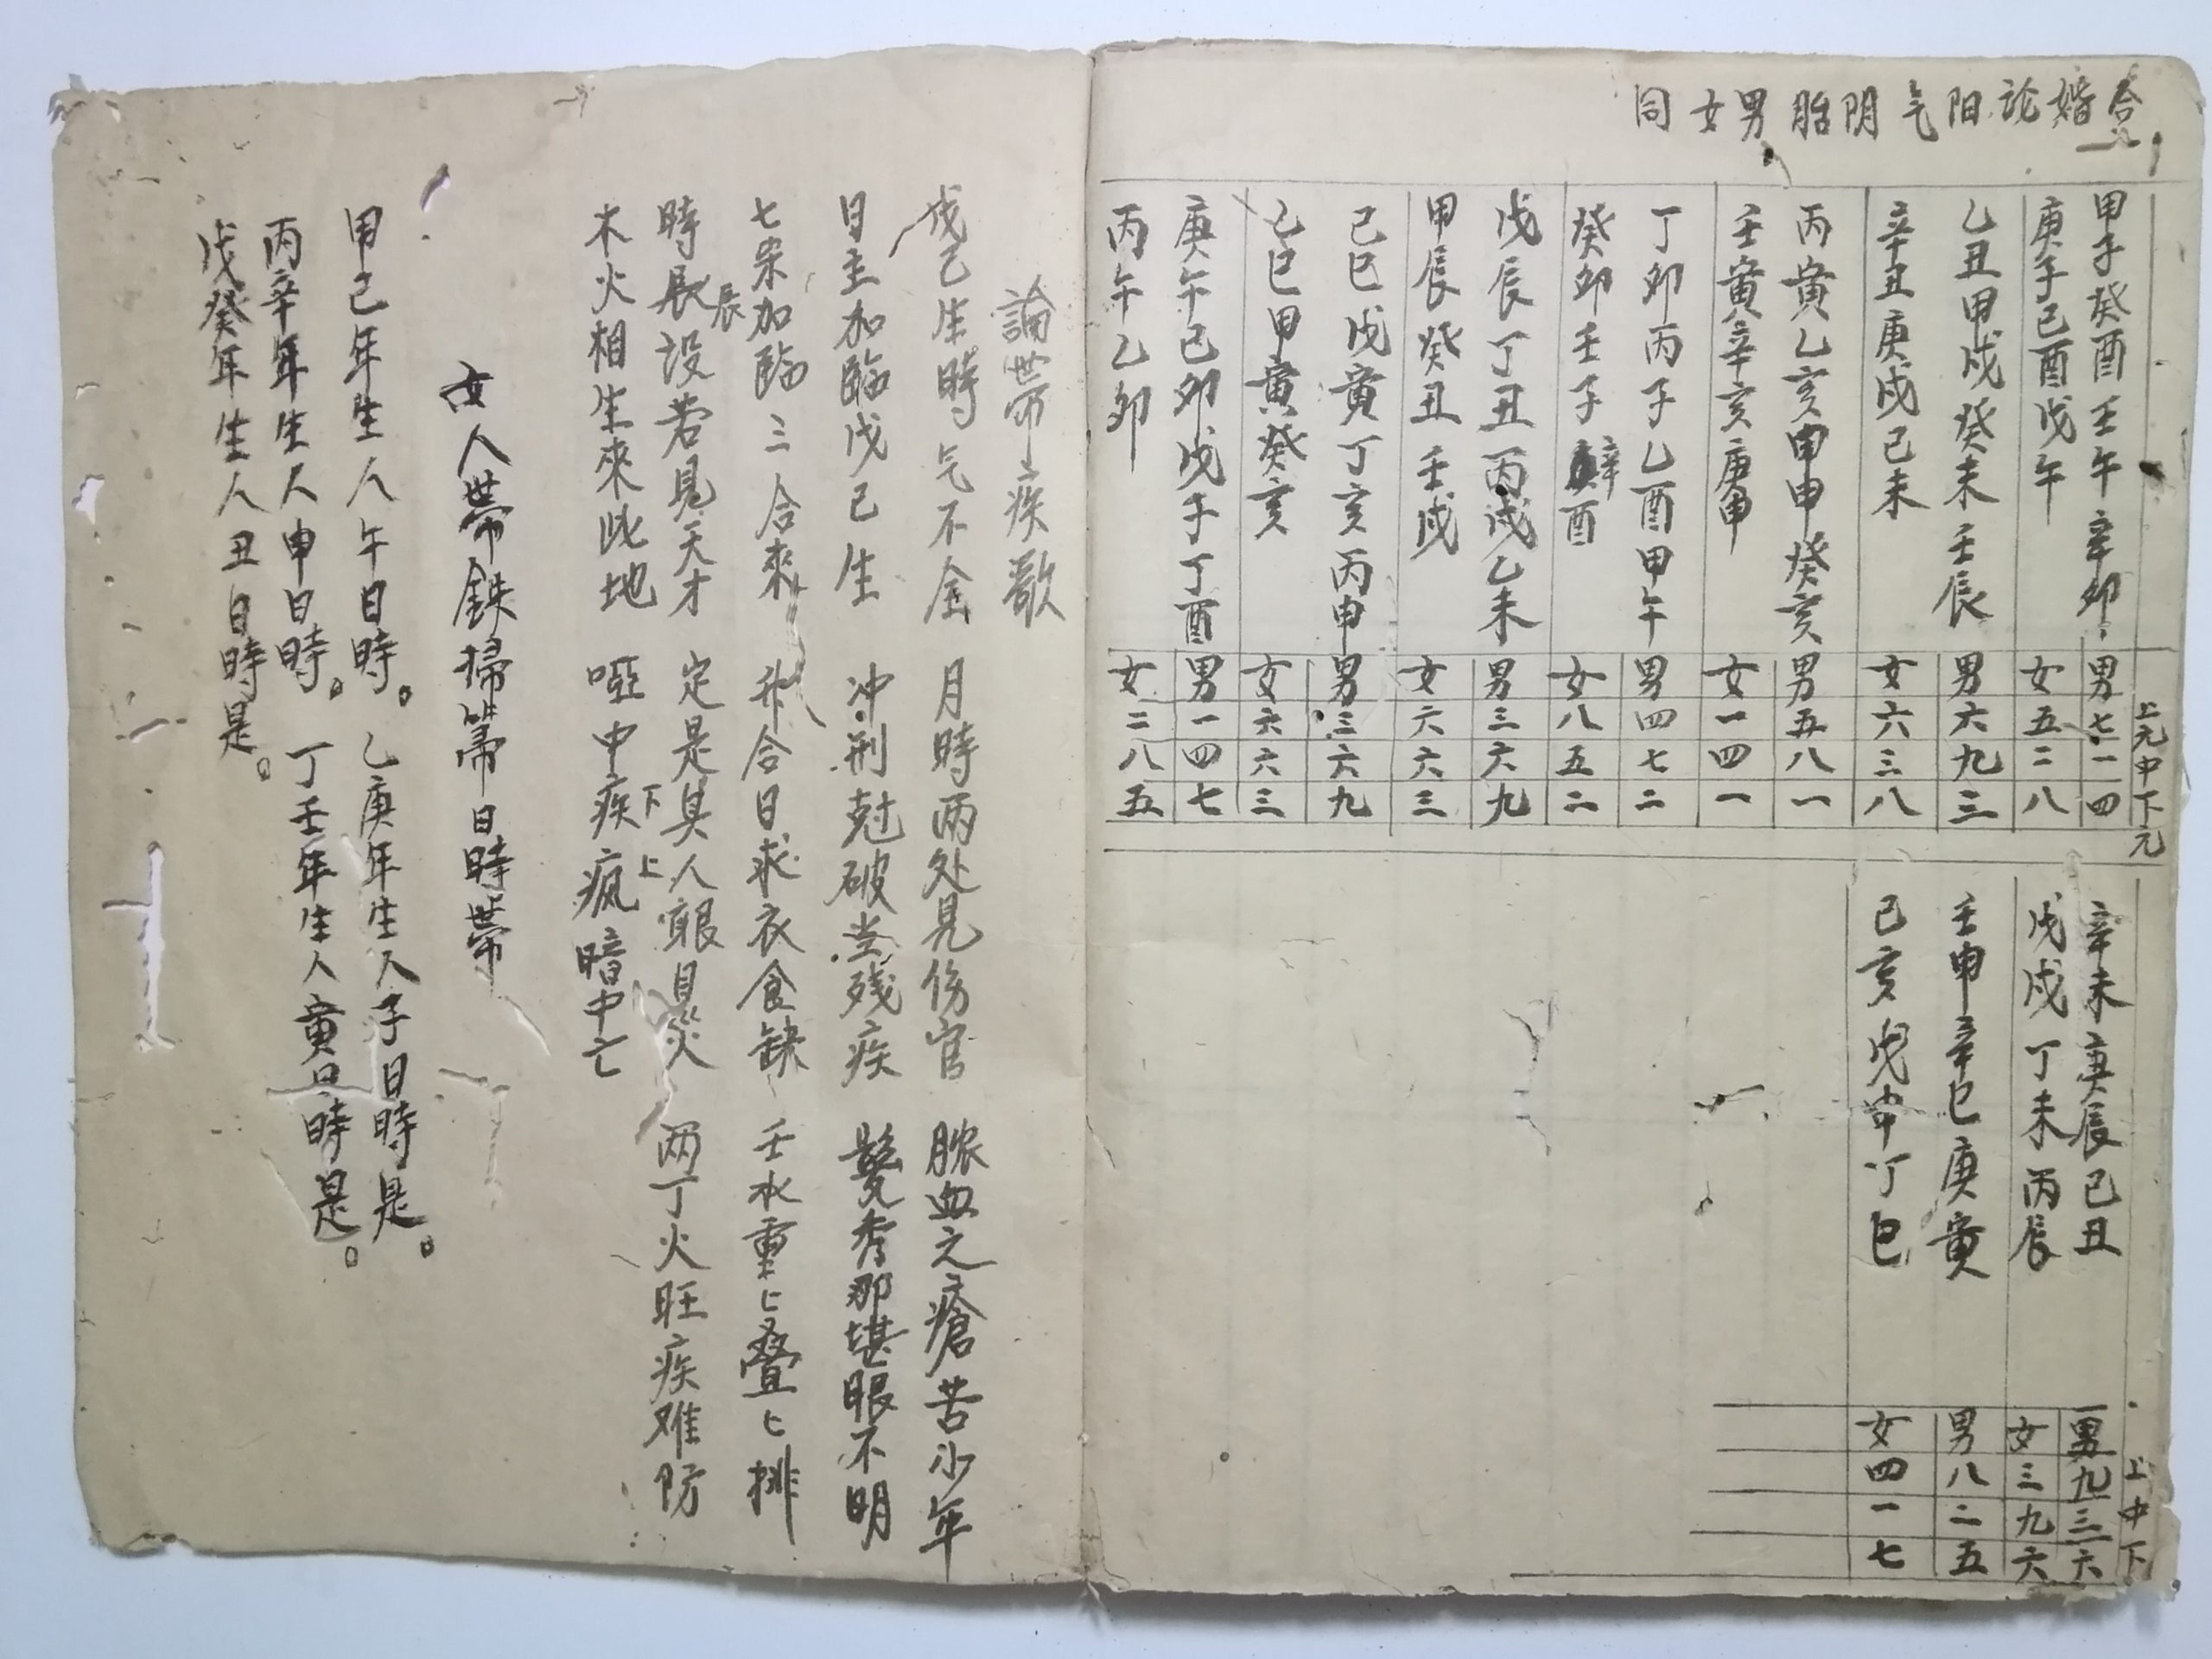 合婚论阳气阴胎男女同
上元中下元
甲子癸酉壬午辛卯 男七一四
庚子己酉戊午 女五二八
乙丑甲戌癸未壬辰 男六九三
辛丑庚戌己未 女六三八
丙寅乙亥甲申癸亥 男五八一
壬寅辛亥庚申 女一四一
丁卯丙子乙酉甲午 男四七二
癸卯壬子辛酉 女八五二
戊辰丁丑丙戌乙未 男三六九
甲辰癸丑壬戌 女六六三
己巳戊寅丁亥丙申 男三六九
乙巳甲寅癸亥 女六六三
庚午己卯戊子丁酉 男一四七
丙午乙卯 女二八五
上中下
辛未庚辰己丑 男九三六
戊戌丁未丙辰 女三九六
壬申辛巳庚寅 男八二五
己亥戊申丁巳 女四一七
論带疾歌
戊己生時气不全 月時两处見伤官 脓血之瘡苦少年
日主加臨戊己生 冲刑尅破当残疾 髮秀那堪眼不明
七杀加臨三合來 升合日求衣食缺 壬水重匕叠匕排
時辰设若見天才 定是其人艰目災 两丁火旺疾难防
木火相生來此地 啞中疾瘋暗中亡
下 上
女人带鉄掃帚日時带
甲己年生人午日時。乙庚年生人子日時是。
丙辛年生人申日時。丁壬年生人寅日時是。
戊癸年生人丑日時是。